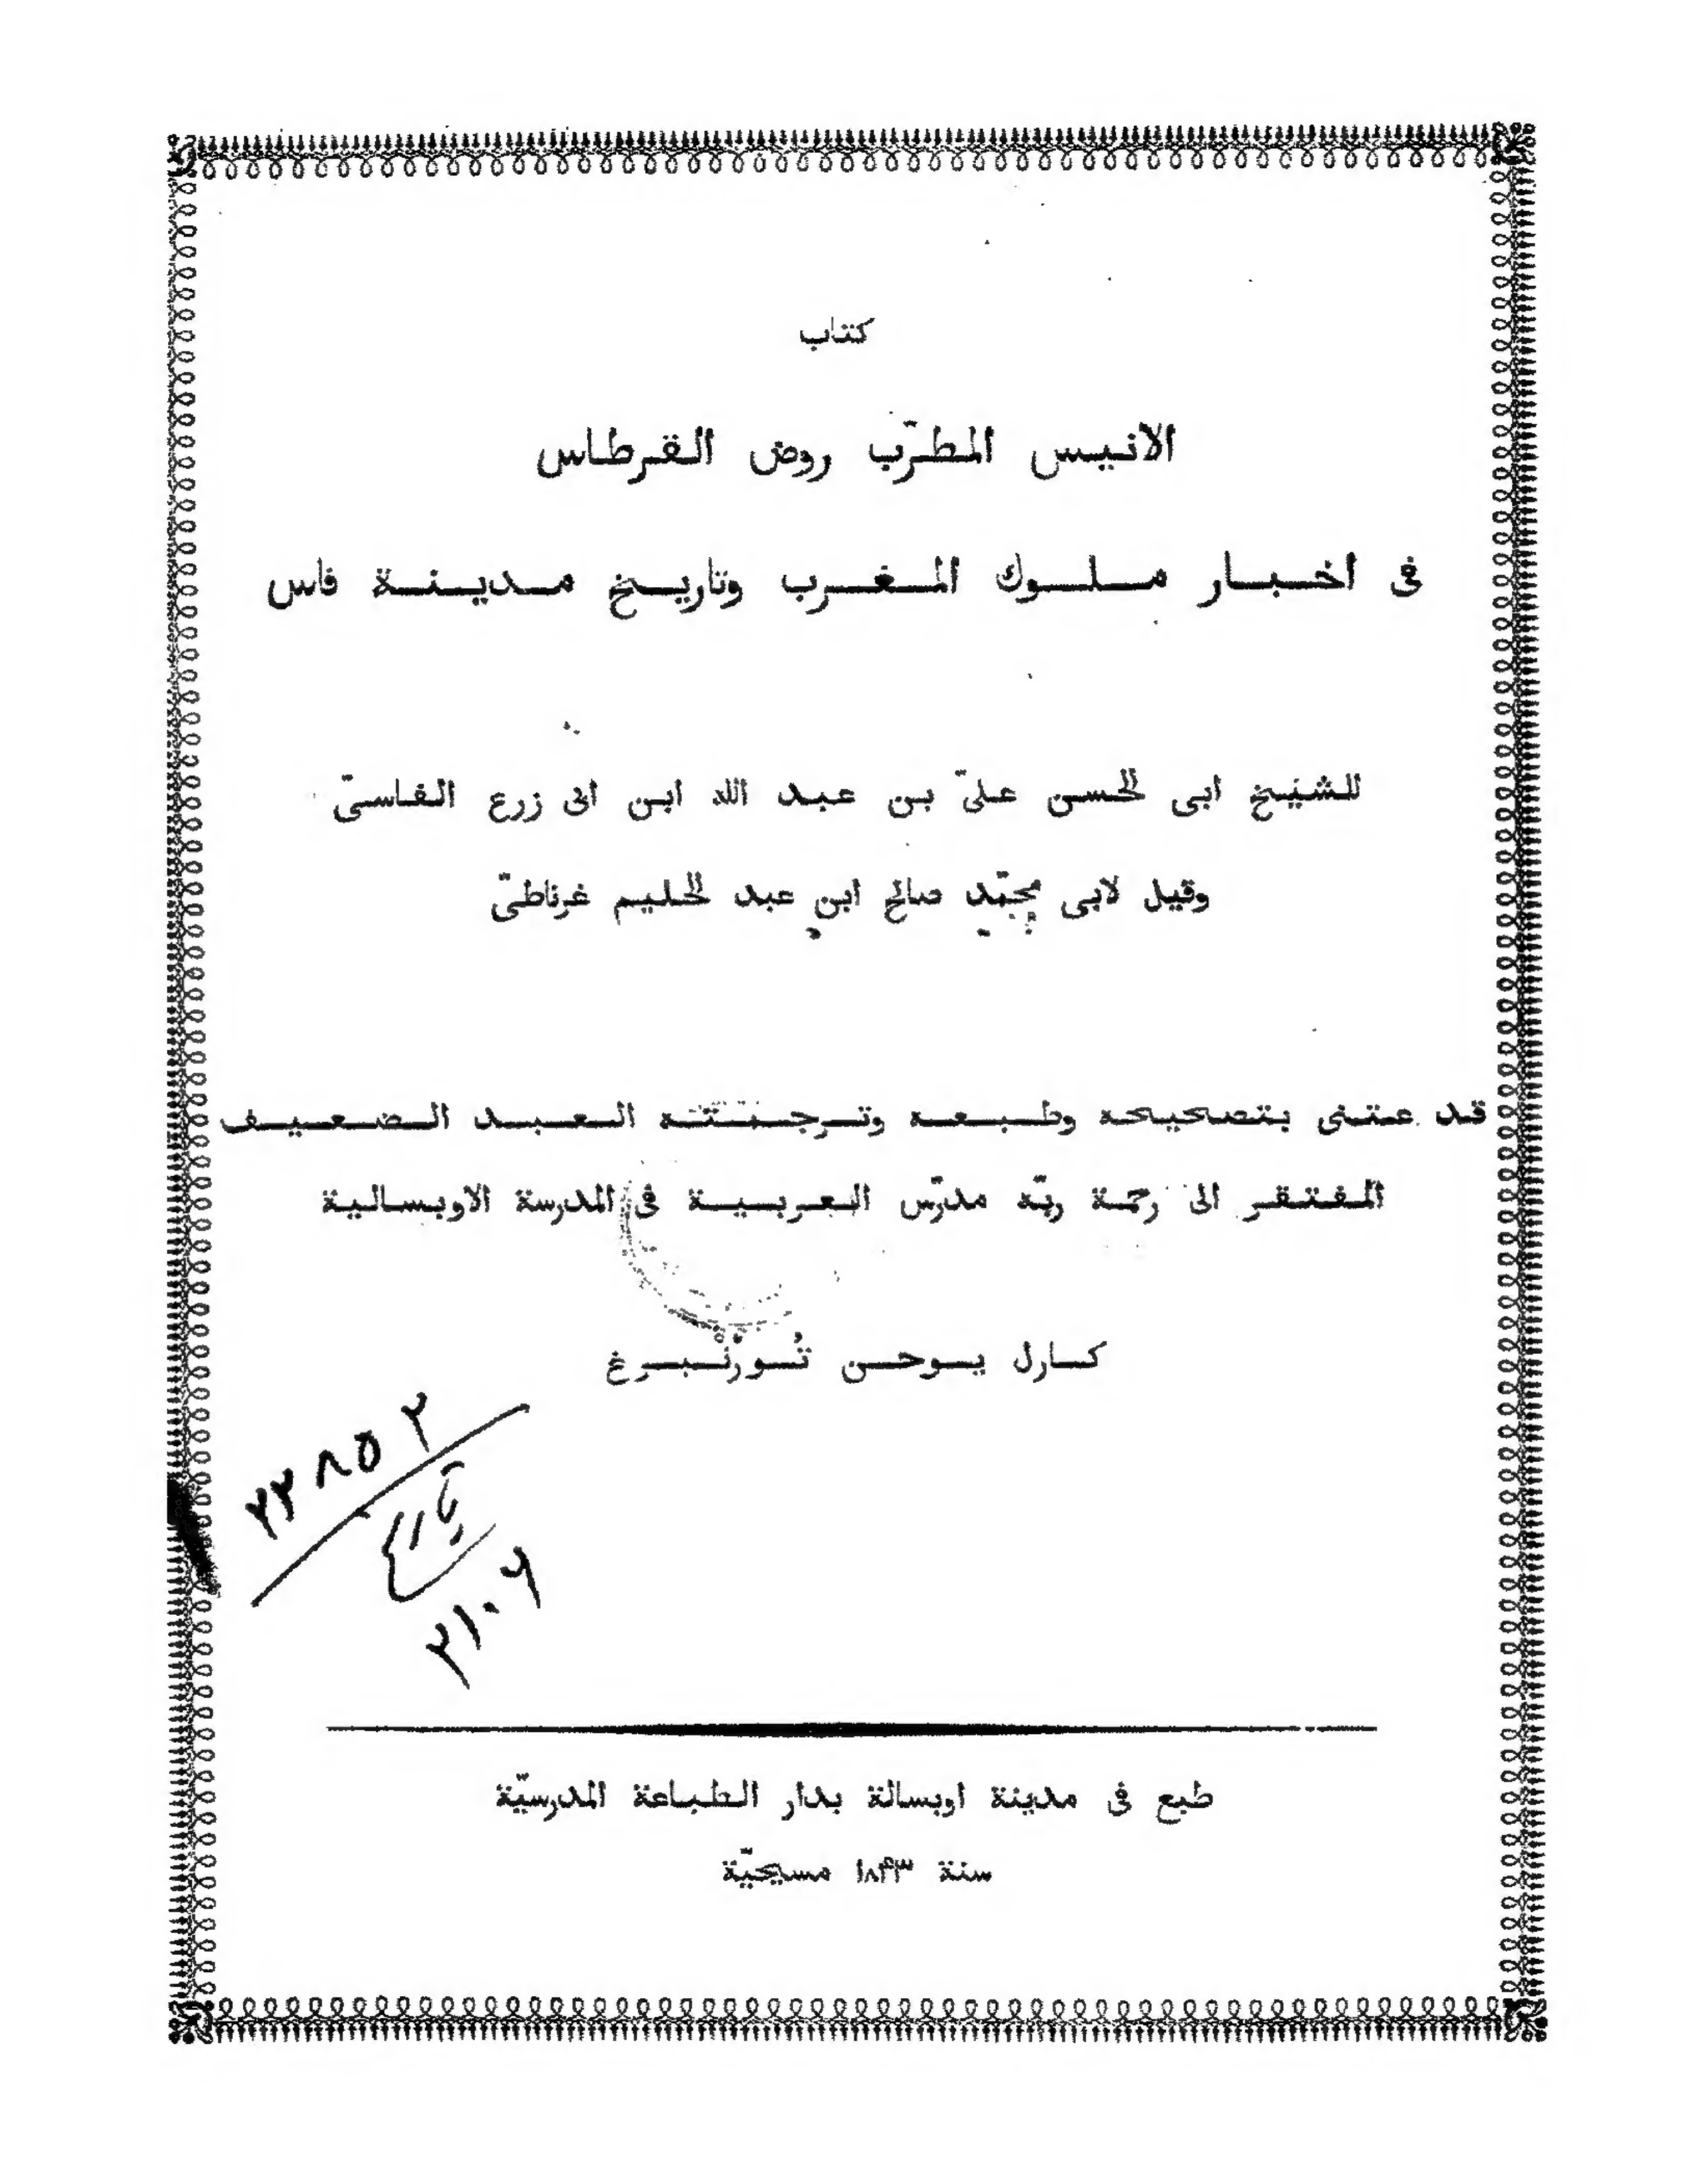 كتاب
الانيس المطرّب روض القرطاس
فى اخبار ملوك المغرب وتاريخ مدينة فاس
للشيخ ابى الحسن علىّ بن عبد الله ابن ابى زرع الفاسىّ
وقيل لابى محمّد صالح ابن عبد الحليم غرناطىّ
قد عتنى بتصحيحه وطبعه وترجمته العبد الضعيف
المفتقر الى رحمة ربّه مدرّس العربية فى المدرسة الاوبسالية
كارل يوحن تُورْنْبرغ
٢٢٨٥٢
٢١٠٦
طبع فى مدينة اوبسالة بدار الطباعة المدرسيّة
سنة ١٨۴٣ مسيحيّة